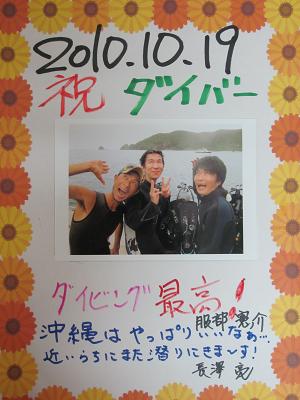 2010.10.19
祝 ダイバー
ダイビング 最高!
服部 憲介
沖縄は やっぱりいいなぁ…
近いうちにまた潜りにきまーす!
長澤